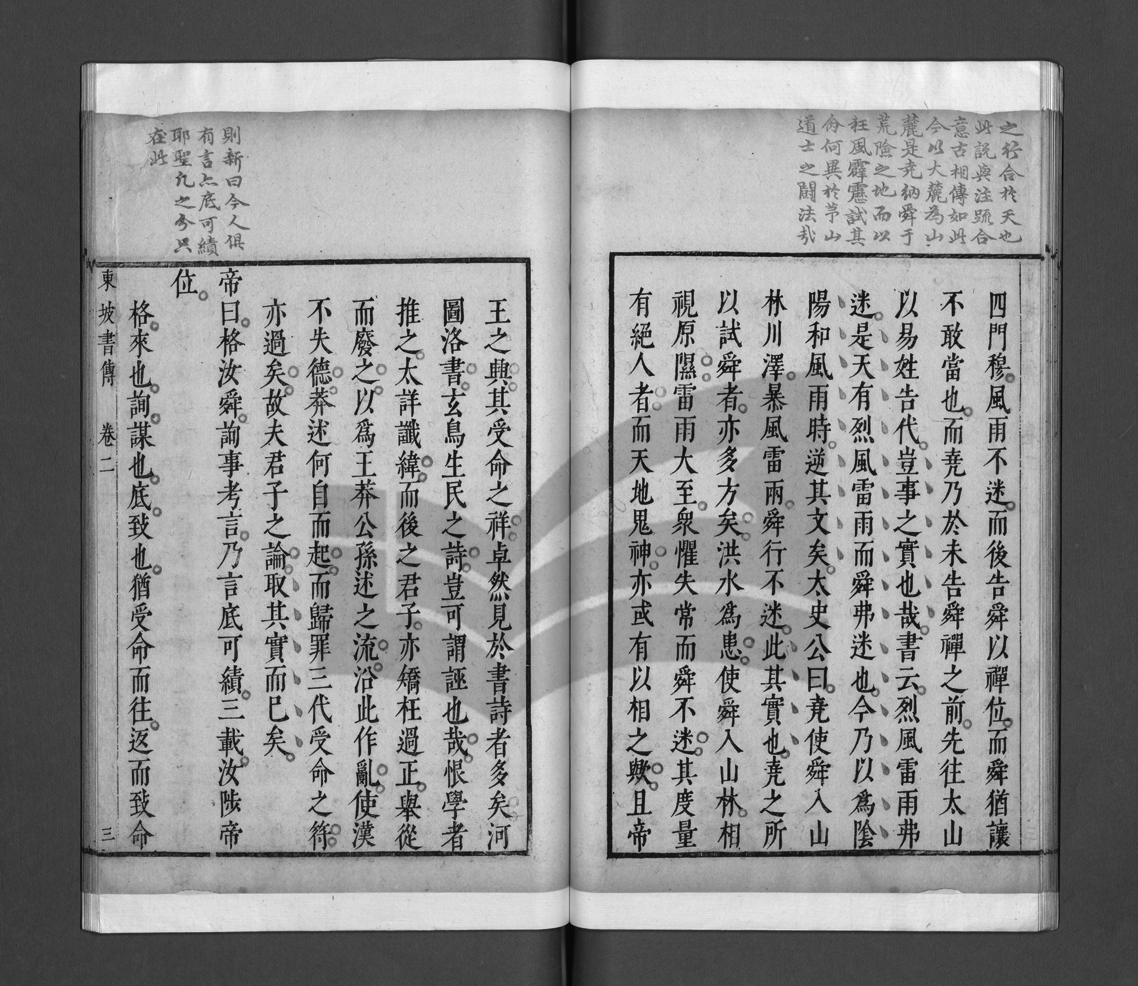 之行合於天也
此説與注䟽合
意古相傳如此
今以大麓為山
麓是堯納舜于
荒險之地而以
狂風霹靂試其
命何異於茅山
道士之鬪法哉
四門穆風雨不迷而後告舜以禪位而舜猶讓
不敢當也而堯乃於未告舜禪之前先往太山
以易姓告代豈事之實也哉書云烈風雷雨弗
迷是天有烈風雷雨而舜弗迷也今乃以爲陰
陽和風雨時逆其文矣太史公曰堯使舜入山
林川澤暴風雷雨舜行不迷此其實也堯之所
以試舜者亦多方矣洪水爲患使舜入山林相
視原隰雷雨大至衆懼失常而舜不迷其度量
有絕人者而天地鬼神亦或有以相之歟且帝
則新曰今人俱
有言亾底可績
耶聖凡之分只
在此
王之興其受命之祥卓然見於書詩者多矣河
圖洛書玄鳥生民之詩豈可謂誣也哉恨學者
推之太詳讖緯而後之君子亦矯枉過正舉從
而廢之以爲王莽公孫述之流沿此作亂使漢
不失德莽述何自而起而歸罪三代受命之符
亦過矣故夫君子之論取其實而已矣
帝曰格汝舜詢事考言乃言底可績三載汝陟帝
位
格來也詢謀也底致也猶受命而往返而致命
東坡書傳 卷二 三